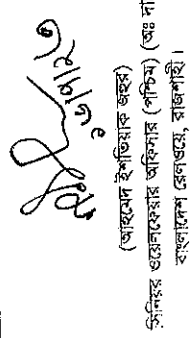 (আহমেদ ইশতিয়াক জহুর)
সিনিয়র ওয়েলফেয়ার অফিসার (পশ্চিম) (অঃ দা
বাংলাদেশ রেলওয়ে, রাজশাহী।